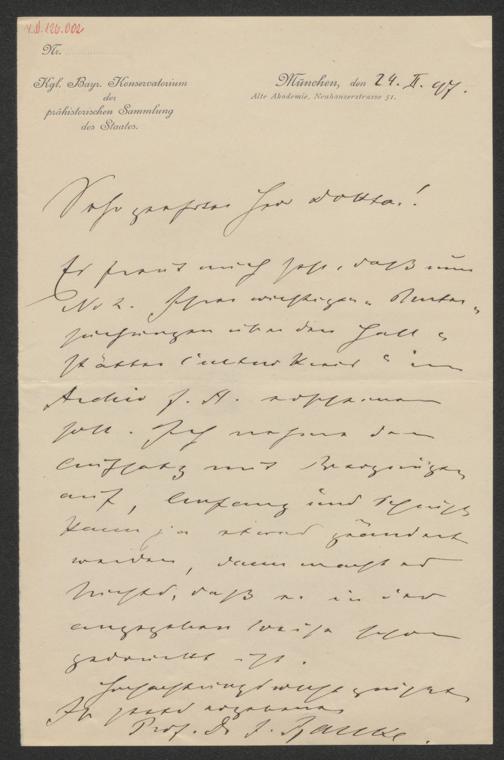 V.II.126.002
Nr.
Kgl. Bayr. Konservatorium
der
prähistorischen Sammlung
des Staates.
München, den 24. II. 97.
Alte Akademie, Neuhauserstrasse 51.
Sehr geehrter Herr Doktor!
Es freut mich sehr, daß nun
No 2. Ihrer wichtigen „Unter„
suchungen über den Hall„
stätter Culturkreis“ im
Archiv f. A. erscheinen
soll. Ich nehme den
Aufsatz mit Vergnügen
auf, Anfang und Schluß
kann ja etwas geändert
werden, dann macht es
Nichts, daß er in der
angegeben Weise schon
gedruckt ist.
Hochachtungsvollst grüßt
Ihr stets ergebener
Prof. Dr J. Ranke.